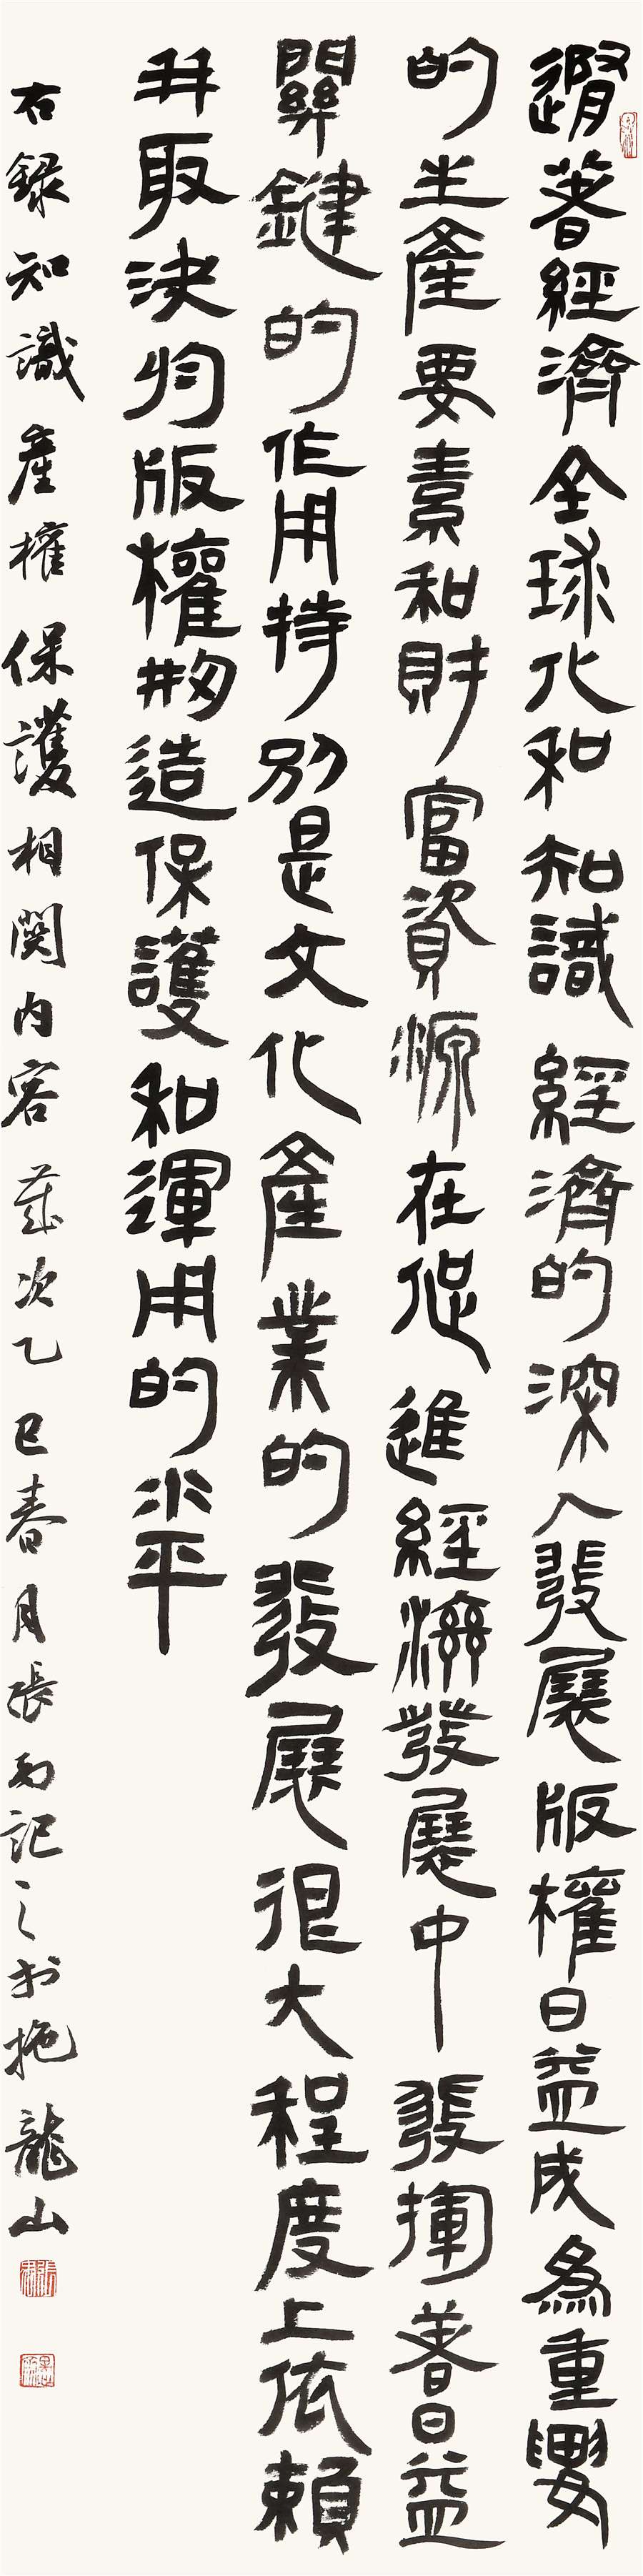 隨著經濟全球化和知識經濟的深入發展版權日益成為重要
的生產要素和財富資源在促進經濟發展中發揮著日益
關鍵的作用特別是文化產業的發展很大程度上依賴
并取決於版權刱造保護和運用的水平
右録知識產權保護相関内容歲次乙巳春月張記之於拖龍山